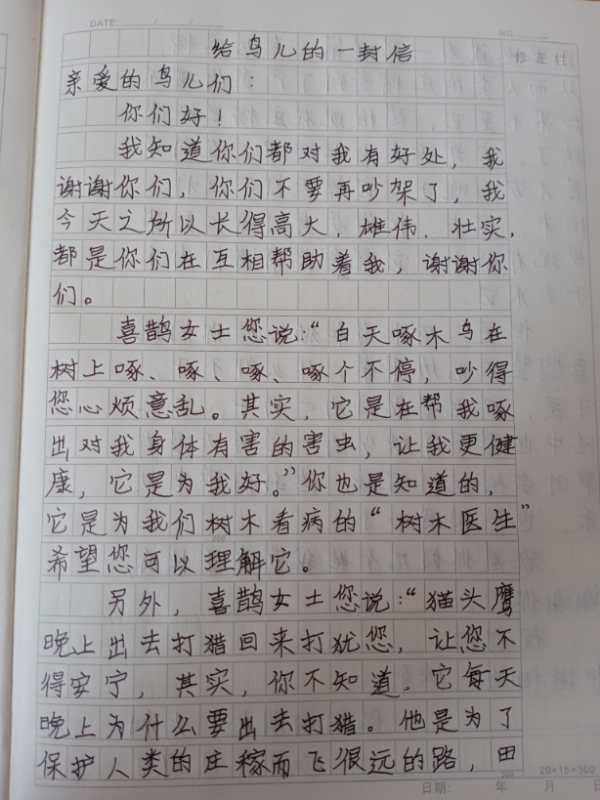 DATE:
给鸟儿的一封信
亲爱的鸟儿们：
你们好！
我知道你们都对我有好处，我
谢谢你们，你们不要再吵架了，我
今天之所以长得高大，雄伟．壮实，
都是你们在互相帮助着我，谢谢你
们。
喜鹊女士您说：“白天啄木鸟在
树上啄、啄、啄、啄个不停，吵得
您心烦意乱。其实，它是在帮我啄
出对我身体有害的害虫，让我更健
康，它是为我好。”你也是知道的，
它是为我们树木看病的“树木医生”
希望您可以理解它。
另外，喜鹊女士您说：“猫头鹰
晚上出去打猎回来打犹您，让您不
得安宁，其实，你不知道．它每天
晚上为什么要出去打猎。他是为了
保护人类的庄稼而飞很远的路，田
20×15=300
日期： 年 月 日